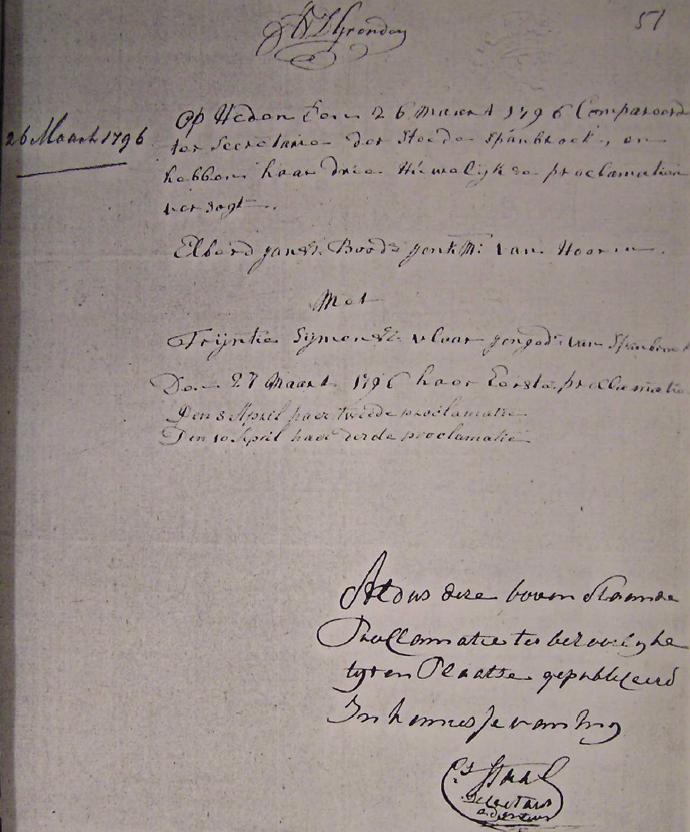 51
26 Maart 1796
Op Heden Den 26 Maart 1796 Compareerde
ter Secretarie der Steede Spanbroek, en
hebben haar drie Huwelijkse proclamatien
versogt.
Elberd Jansz. Boods jonkm: van Hoorn.
Met
Trijntie Sijmons vlaar jonged: van Spanbroek
Den 27 Maart 1796 haar Eerste proclamatie
Den 3 April haer tweede proclamatie
Den 10 April haer derde proclamatie
Aldus deze boven staande
Proclamatie ter behoorlyke
tyt en Plaatse gepubliceerd
Staal
Secretaris